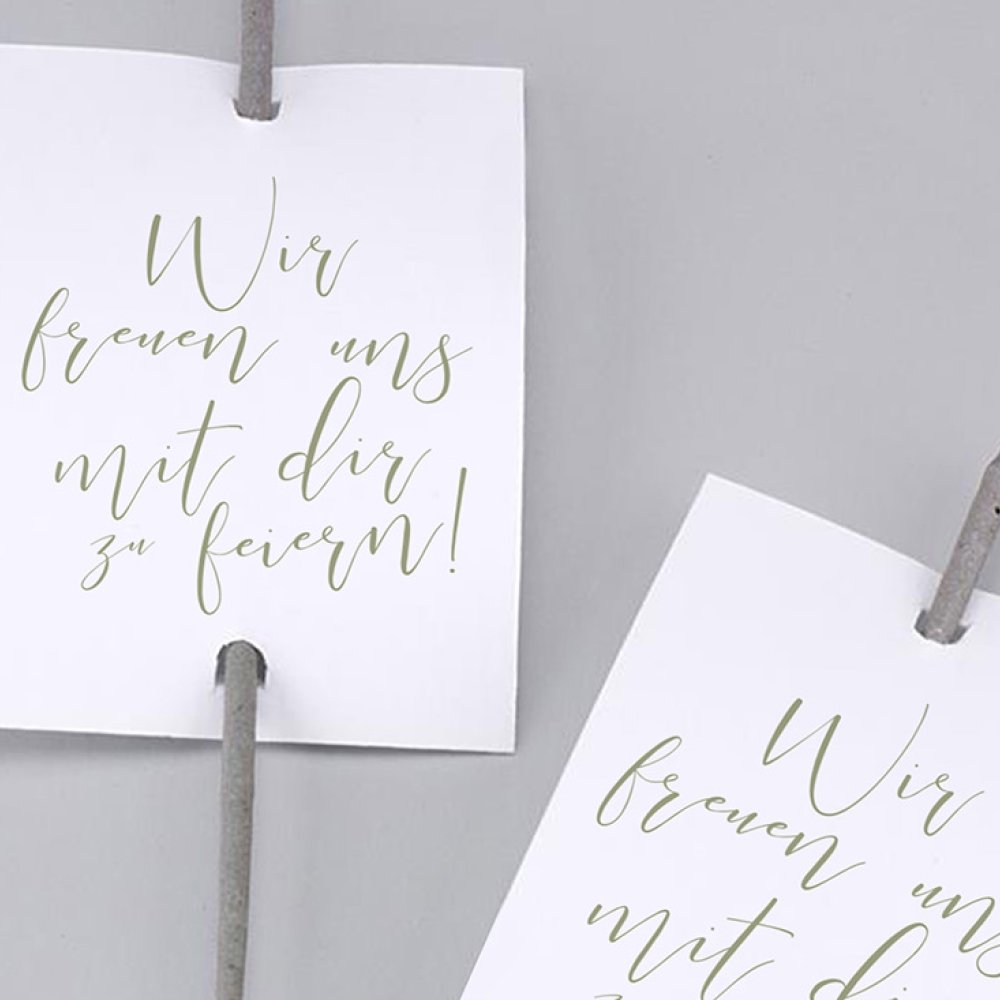 Wir
freuen uns
mit dir
zu feiern!
Wir
freuen uns
mit di